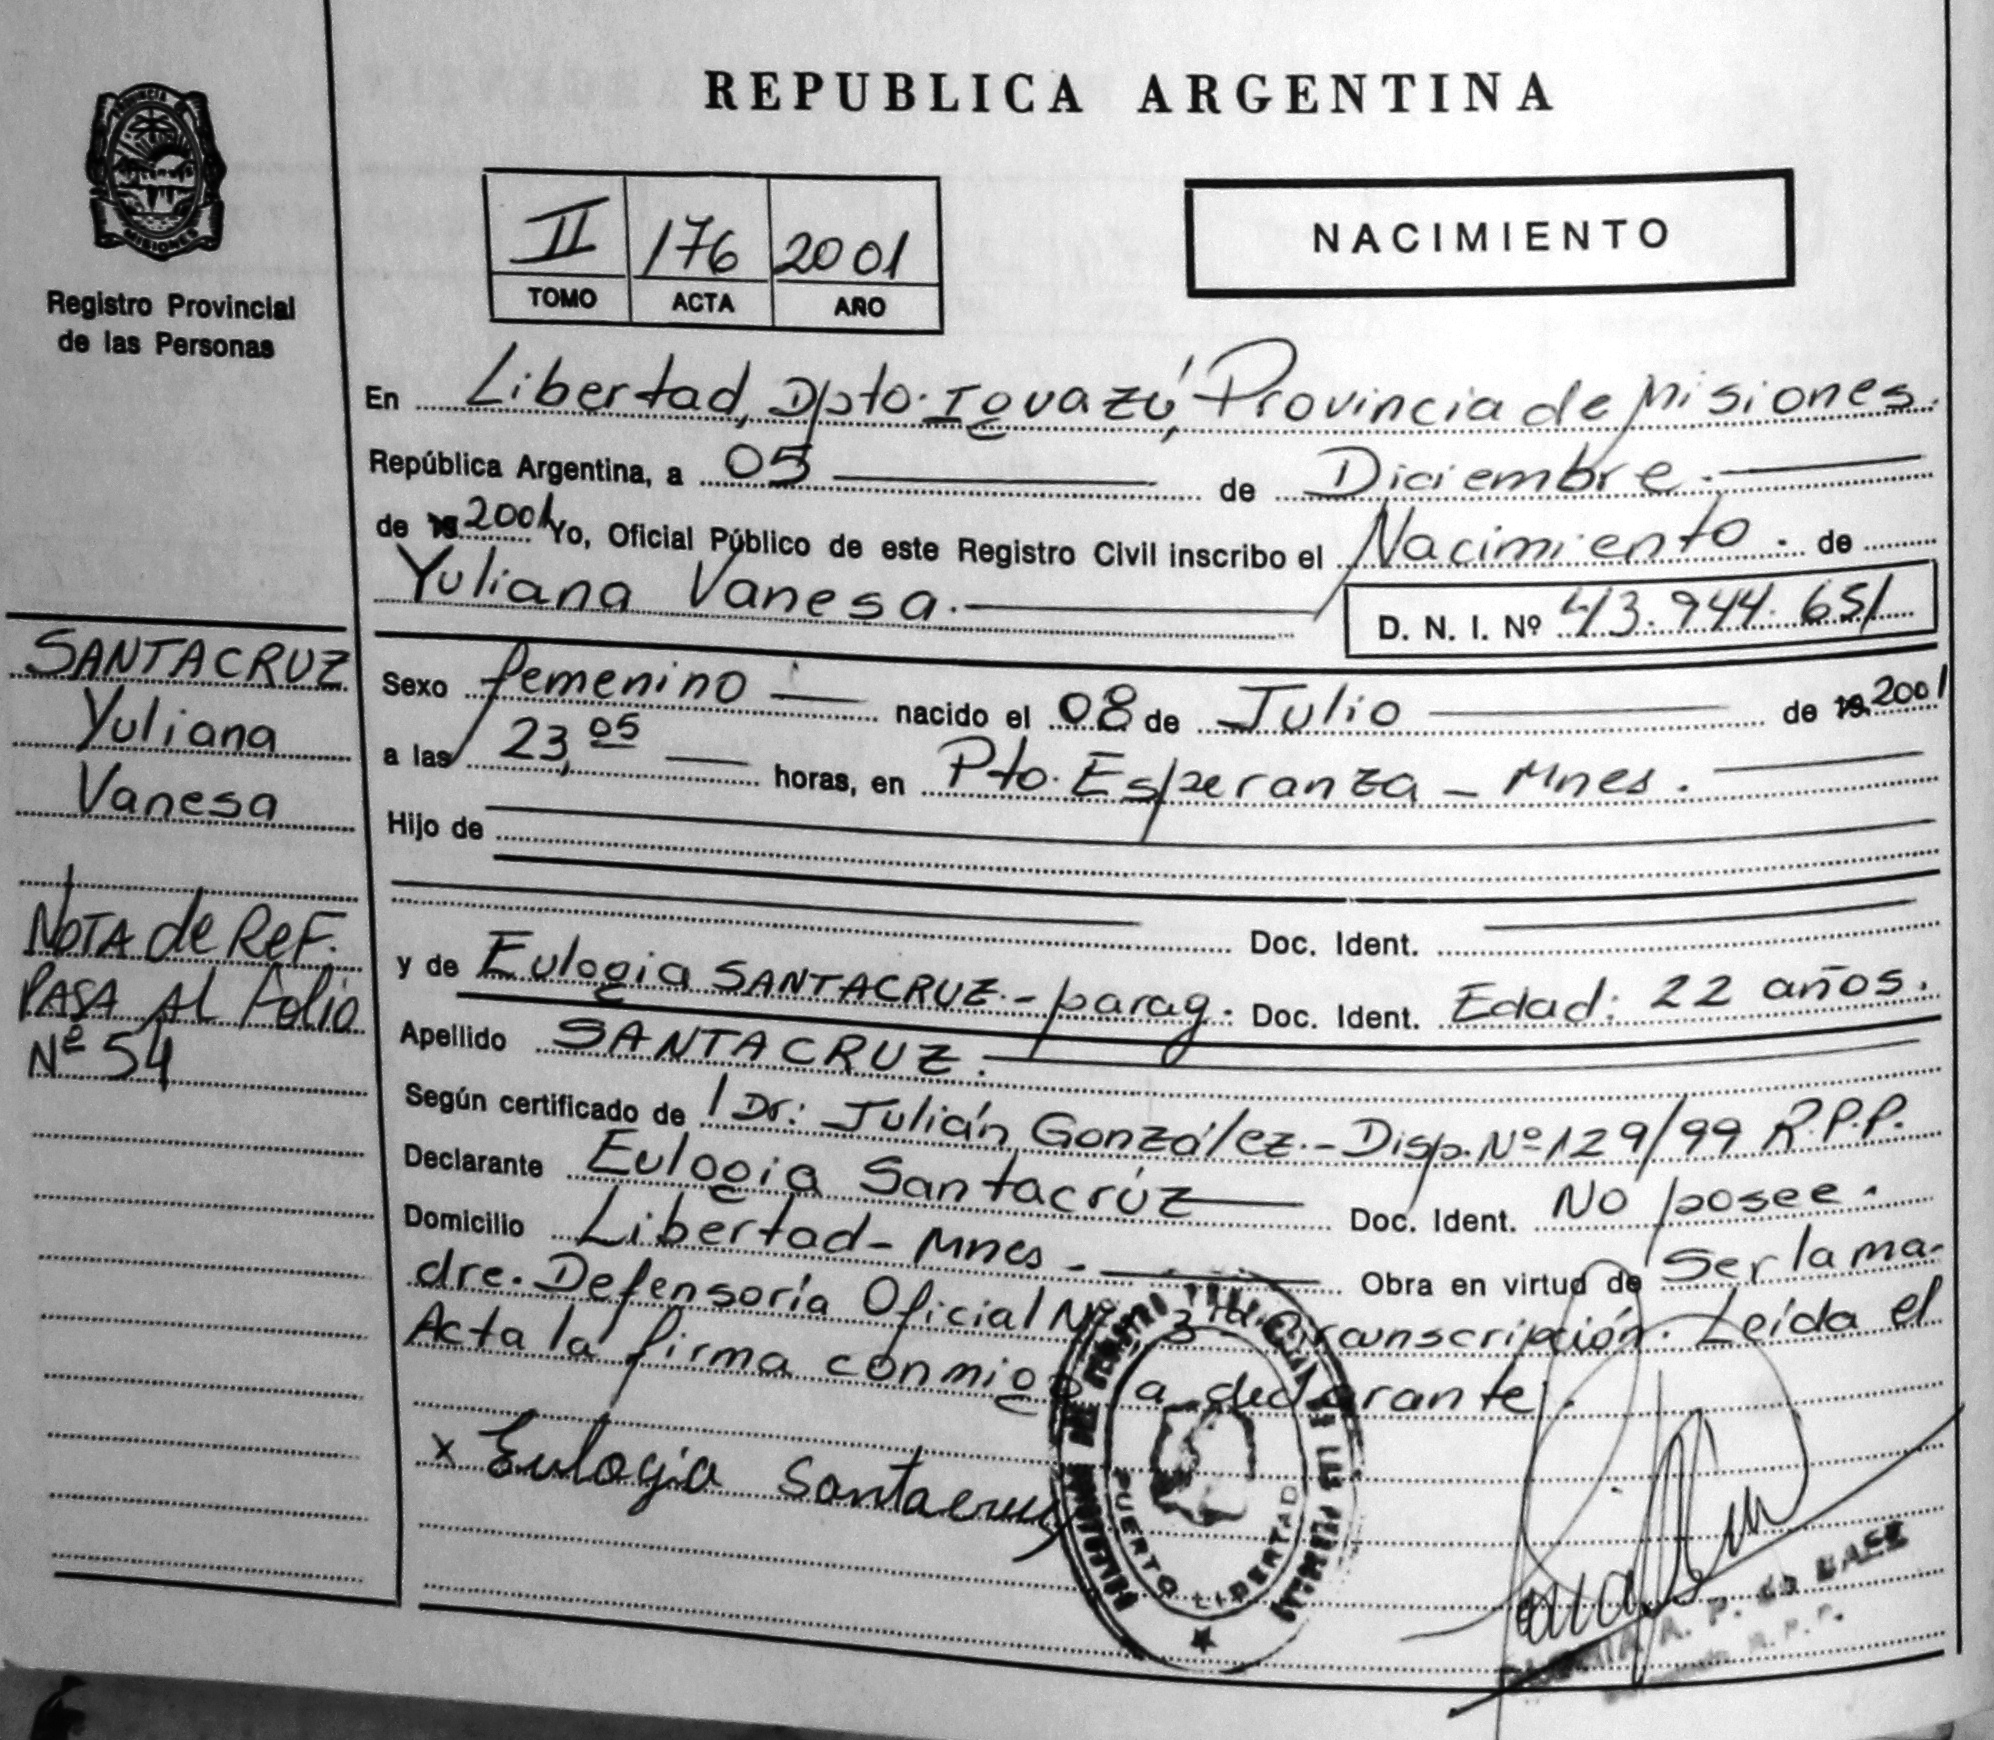 PROVINCIA DE
MISIONES
Registro Provincial
de las Personas
REPUBLICA ARGENTINA
II 176 2001
TOMO ACTA AÑO
NACIMIENTO
En Libertad, Dpto. Iguazú, Provincia de Misiones.
República Argentina, a 05 de Diciembre.
de 19 2001 Yo, Oficial Público de este Registro Civil inscribo el Nacimiento. de
Yuliana Vanesa.
D. N. I. Nº 43.944.651
Sexo femenino nacido el 08 de Julio de 19 2001
a las 23,05 horas, en Pto. Esperanza - Mnes.
Hijo de
Doc. Ident.
y de Eulogia SANTACRUZ.- parag. Doc. Ident. Edad: 22 años.
Apellido SANTACRUZ.
Según certificado de Dr: Julián González.- Disp. Nº 129/99 R.P.P.
Declarante Eulogia Santacrúz Doc. Ident. No posee.
Domicilio Libertad - Mnes. Obra en virtud de Ser la ma-
dre. Defensoría Oficial Nº 3ra Circunscripción. Leída el
Acta la firma conmigo la declarante.
x Eulogia Santacruz
PUERTO LIBERTAD
A. P. de BAEZ
R. P. P.
SANTACRUZ
Yuliana
Vanesa
NOTA de ReF.
PASA AL Folio
Nº 54